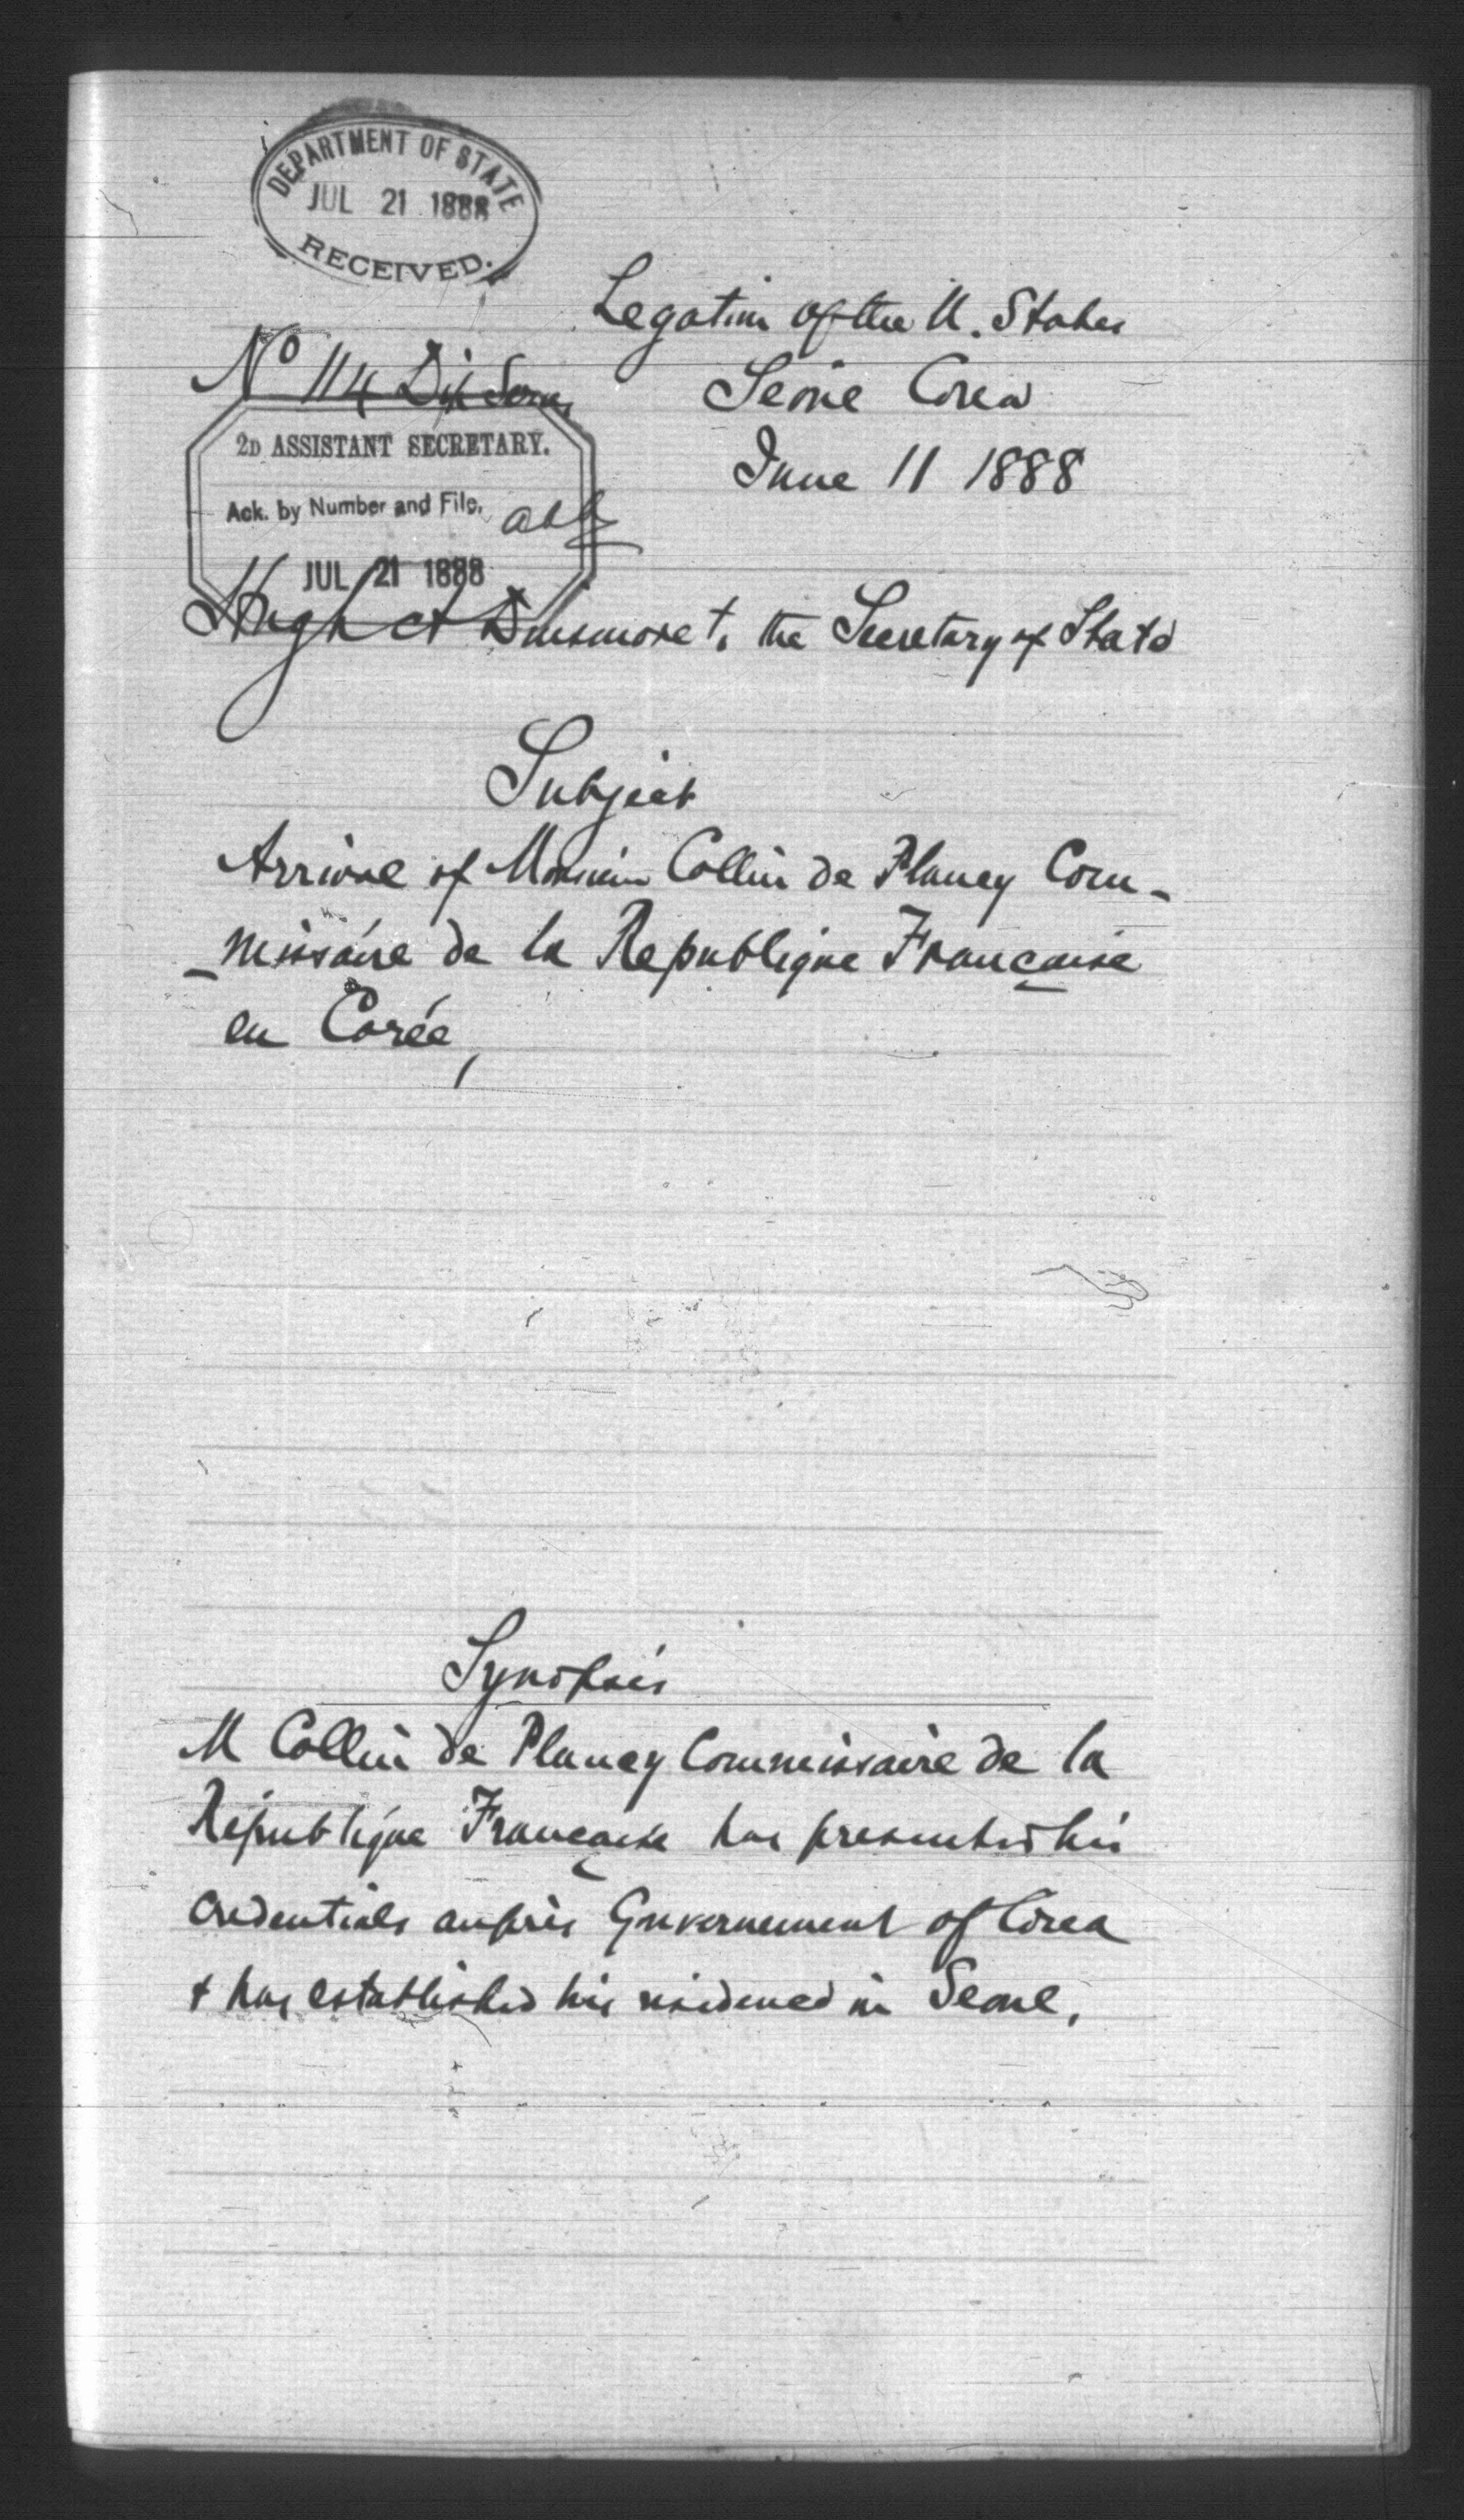 DEPARTMENT OF STATE
JUL 21 1888
RECEIVED.
Legation of the U. States
Nº 114 Dip Series
Seoul Corea
June 11 1888
2D ASSISTANT SECRETARY.
Ack. by Number and File.
JUL 21 1888
Hugh A Dinsmore to the Secretary of State
Subject
Arrival of Monsieur Collin de Plancy Com-
-missaire de la Republique Française
en Corée,
Synopsis
M Collin de Plancy Commissaire de la
République Française has presented his
credentials auprès Gouvernement of Corea
+ has established his residence in Seoul.